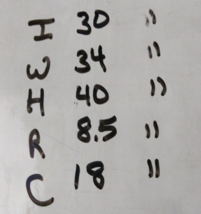 I 30 "
W 34 "
H 40 "
R 8.5 "
C 18 "